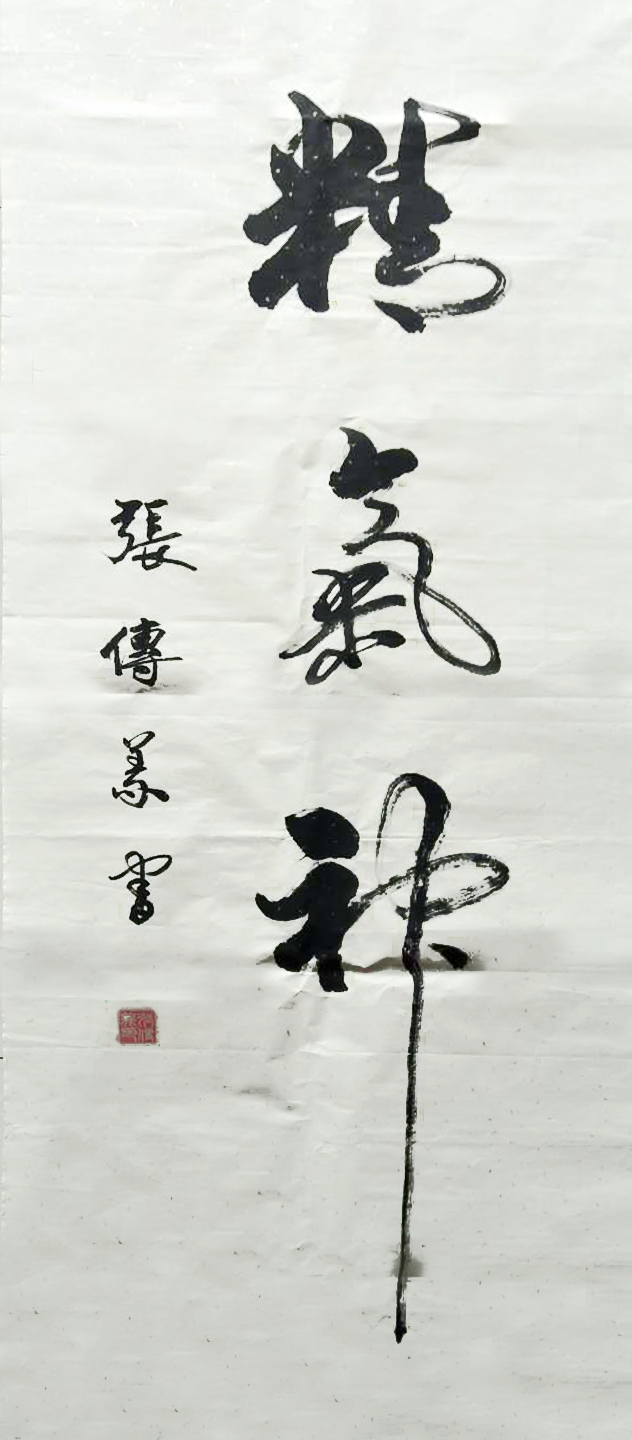 精氣神
張傳義書